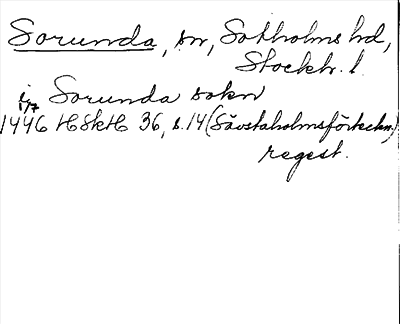 Sorunda, sn, Sotholms hd,
Stockh. l.
i Sorunda sokn
1446 HSkH 36, s. 14 (Såvstaholmsförteckn.)
regest.